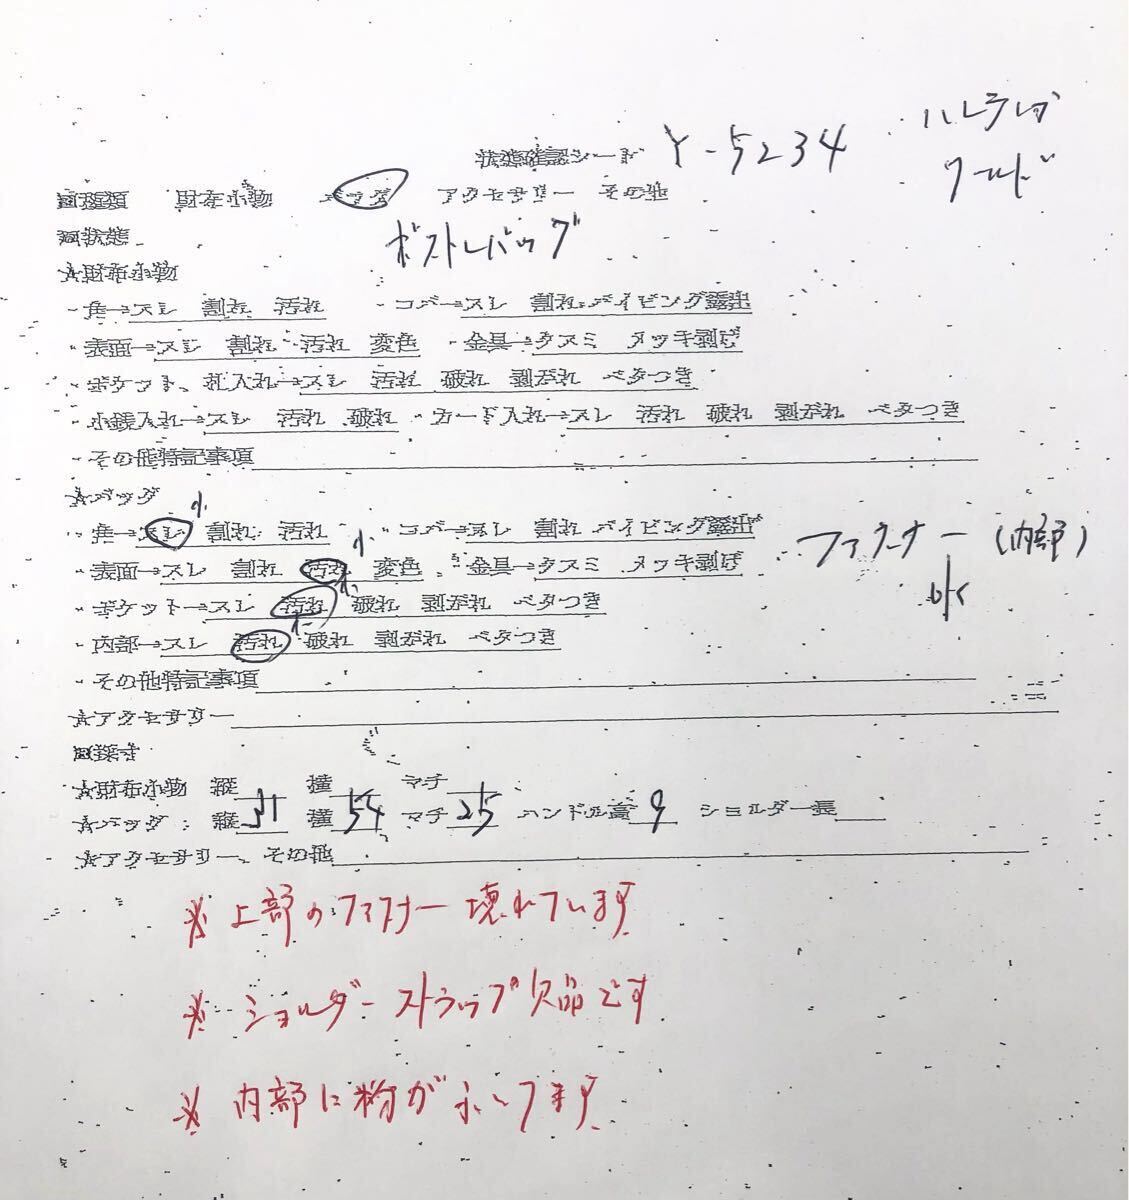 状態確認シート Y-5234 ハレティレオ
ワールド
□種類 財布小物 バッグ アクセサリー その他
□状態 ボストンバッグ
☆財布小物
・角→スレ 割れ 汚れ ・コバ→スレ 割れ パイピング露出
・表面→スレ 割れ 汚れ 変色 ・金具→クスミ メッキ剥げ
・ポケット、札入れ→スレ 汚れ 破れ 剥がれ ベタつき
・小銭入れ→スレ 汚れ 破れ ・カード入れ→スレ 汚れ 破れ 剥がれ ベタつき
・その他特記事項
☆バッグ
・角→スレ 小 割れ 汚れ ・コバ→スレ 割れ パイピング露出
・表面→スレ 割れ 汚れ 小 変色 ・金具→クスミ メッキ剥げ ファスナー(内部)
・ポケット→スレ 汚れ 破れ 剥がれ ベタつき
・内部→スレ 汚れ 破れ 剥がれ ベタつき
・その他特記事項
☆アクセサリー
□採寸
☆財布小物 縦 横 マチ
☆バッグ: 縦 31 横 54 マチ 25 ハンドル高 9 ショルダー長
☆アクセサリー、その他
※上部のファスナー壊れています
※ショルダーストラップ欠品です
※内部に粉がふいてます